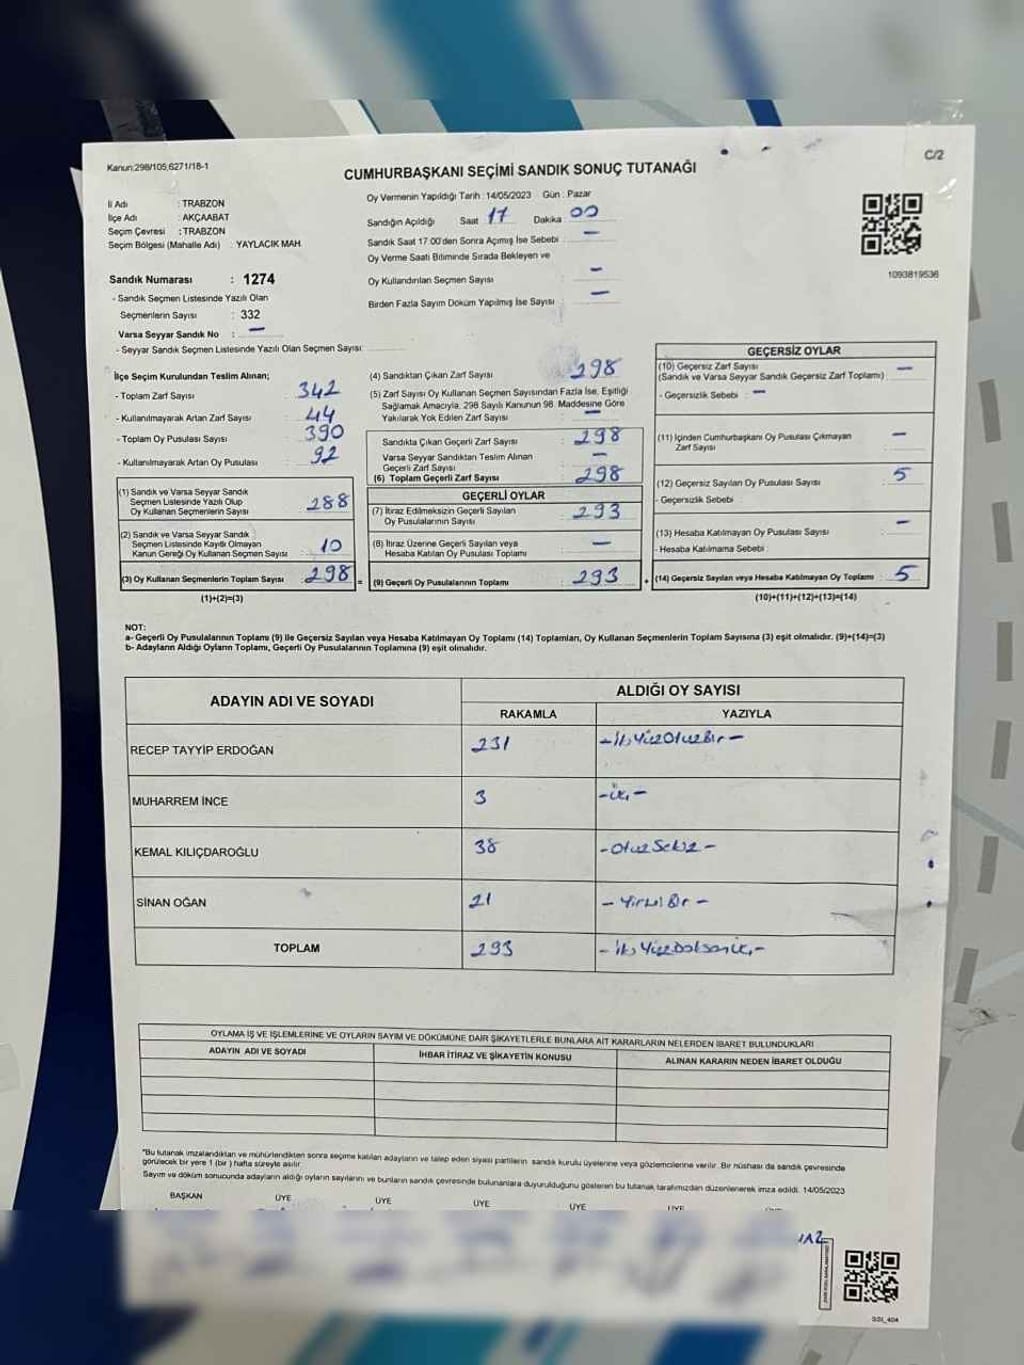 Kanun:298/105,6271/18-1
C/2
CUMHURBAŞKANI SEÇİMİ SANDIK SONUÇ TUTANAĞI
İl Adı : TRABZON
İlçe Adı : AKÇAABAT
Seçim Çevresi : TRABZON
Seçim Bölgesi (Mahalle Adı) : YAYLACIK MAH.
Oy Vermenin Yapıldığı Tarih : 14/05/2023 Gün : Pazar
Sandığın Açıldığı Saat 17 Dakika 00
Sandık Saat 17:00'den Sonra Açımış İse Sebebi : —
Oy Verme Saati Bitiminde Sırada Bekleyen ve
Oy Kullandırılan Seçmen Sayısı : —
Birden Fazla Sayım Döküm Yapılmış İse Sayısı : —
1093819536
Sandık Numarası : 1274
- Sandık Seçmen Listesinde Yazılı Olan
Seçmenlerin Sayısı : 332
Varsa Seyyar Sandık No : —
- Seyyar Sandık Seçmen Listesinde Yazılı Olan Seçmen Sayısı:
İlçe Seçim Kurulundan Teslim Alınan;
- Toplam Zarf Sayısı : 342
- Kullanılmayarak Artan Zarf Sayısı : 44
- Toplam Oy Pusulası Sayısı : 390
- Kullanılmayarak Artan Oy Pusulası : 92
(1) Sandık ve Varsa Seyyar Sandık
Seçmen Listesinde Yazılı Olup
Oy Kullanan Seçmenlerin Sayısı : 288
(2) Sandık ve Varsa Seyyar Sandık
Seçmen Listesinde Kayıtlı Olmayan
Kanun Gereği Oy Kullanan Seçmen Sayısı : 10
(3) Oy Kullanan Seçmenlerin Toplam Sayısı : 298 =
(1)+(2)=(3)
(4) Sandıktan Çıkan Zarf Sayısı : 298
(5) Zarf Sayısı Oy Kullanan Seçmen Sayısından Fazla İse, Eşitliği
Sağlamak Amacıyla, 298 Sayılı Kanunun 98. Maddesine Göre
Yakılarak Yok Edilen Zarf Sayısı : —
Sandıkta Çıkan Geçerli Zarf Sayısı : 298
Varsa Seyyar Sandıktan Teslim Alınan
Geçerli Zarf Sayısı : —
(6) Toplam Geçerli Zarf Sayısı : 298
GEÇERLİ OYLAR
(7) İtiraz Edilmeksizin Geçerli Sayılan
Oy Pusulalarının Sayısı : 293
(8) İtiraz Üzerine Geçerli Sayılan veya
Hesaba Katılan Oy Pusulası Toplamı : —
(9) Geçerli Oy Pusulalarının Toplamı : 293 +
GEÇERSİZ OYLAR
(10) Geçersiz Zarf Sayısı
(Sandık ve Varsa Seyyar Sandık Geçersiz Zarf Toplamı) : —
- Geçersizlik Sebebi : —
(11) İçinden Cumhurbaşkanı Oy Pusulası Çıkmayan
Zarf Sayısı : —
(12) Geçersiz Sayılan Oy Pusulası Sayısı : 5
- Geçersizlik Sebebi :
(13) Hesaba Katılmayan Oy Pusulası Sayısı : —
- Hesaba Katılmama Sebebi :
(14) Geçersiz Sayılan veya Hesaba Katılmayan Oy Toplamı : 5
(10)+(11)+(12)+(13)=(14)
NOT:
a- Geçerli Oy Pusulalarının Toplamı (9) ile Geçersiz Sayılan veya Hesaba Katılmayan Oy Toplamı (14) Toplamları, Oy Kullanan Seçmenlerin Toplam Sayısına (3) eşit olmalıdır. (9)+(14)=(3)
b- Adayların Aldığı Oyların Toplamı, Geçerli Oy Pusulalarının Toplamına (9) eşit olmalıdır.
ADAYIN ADI VE SOYADI
ALDIĞI OY SAYISI
RAKAMLA YAZIYLA
RECEP TAYYİP ERDOĞAN 231 -İkiYüzOtuzBir-
MUHARREM İNCE 3 -üç-
KEMAL KILIÇDAROĞLU 38 -OtuzSekiz-
SİNAN OĞAN 21 -YirmiBir-
TOPLAM 293 -İkiYüzDoksanüç-
OYLAMA İŞ VE İŞLEMLERİNE VE OYLARIN SAYIM VE DÖKÜMÜNE DAİR ŞİKAYETLERLE BUNLARA AİT KARARLARIN NELERDEN İBARET BULUNDUKLARI
ADAYIN ADI VE SOYADI İHBAR İTİRAZ VE ŞİKAYETİN KONUSU ALINAN KARARIN NEDEN İBARET OLDUĞU
"Bu tutanak imzalandıktan ve mühürlendikten sonra seçime katılan adayların ve talep eden siyasi partilerin sandık kurulu üyelerine veya gözlemcilerine verilir. Bir nüshası da sandık çevresinde
görülecek bir yere 1 (bir) hafta süreyle asılır.
Sayım ve döküm sonucunda adayların aldığı oyların sayılarını ve bunların sandık çevresinde bulunanlara duyurulduğunu gösteren bu tutanak tarafımızdan düzenlenerek imza edildi. 14/05/2023
BAŞKAN ÜYE ÜYE ÜYE ÜYE ÜYE
SSI_404